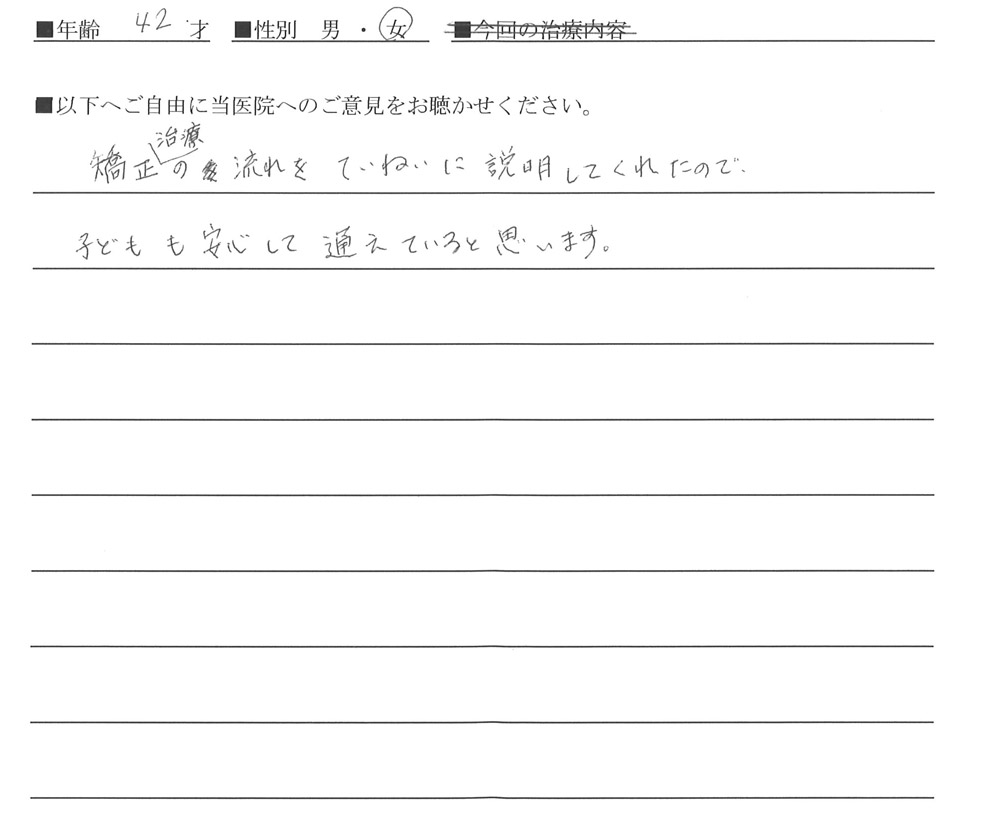 ■年齢 42 才 ■性別 男 ・ 女 ■今回の治療内容
■以下へご自由に当医院へのご意見をお聴かせください。
矯正治療の流れをていねいに説明してくれたので、
子どもも安心して通えていると思います。